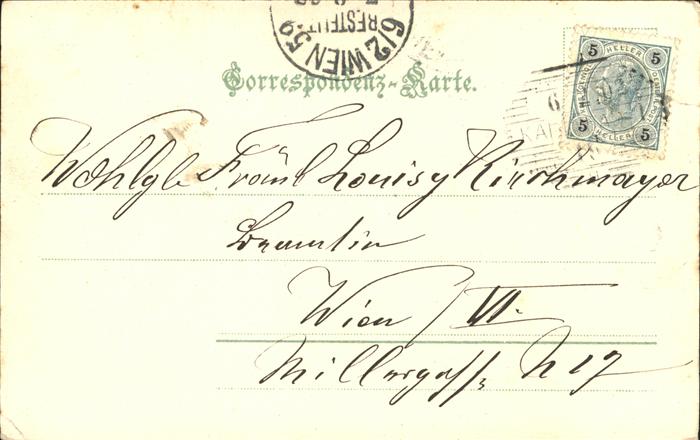 6/2 WIEN 59
BESTELLT
Correspondenz-Karte.
5 HELLER 5
5 HELLER 5
6
Wohlgb Fräul Louisy Kirchmayer
Beamtin
Wien VI.
Millergasse N 17